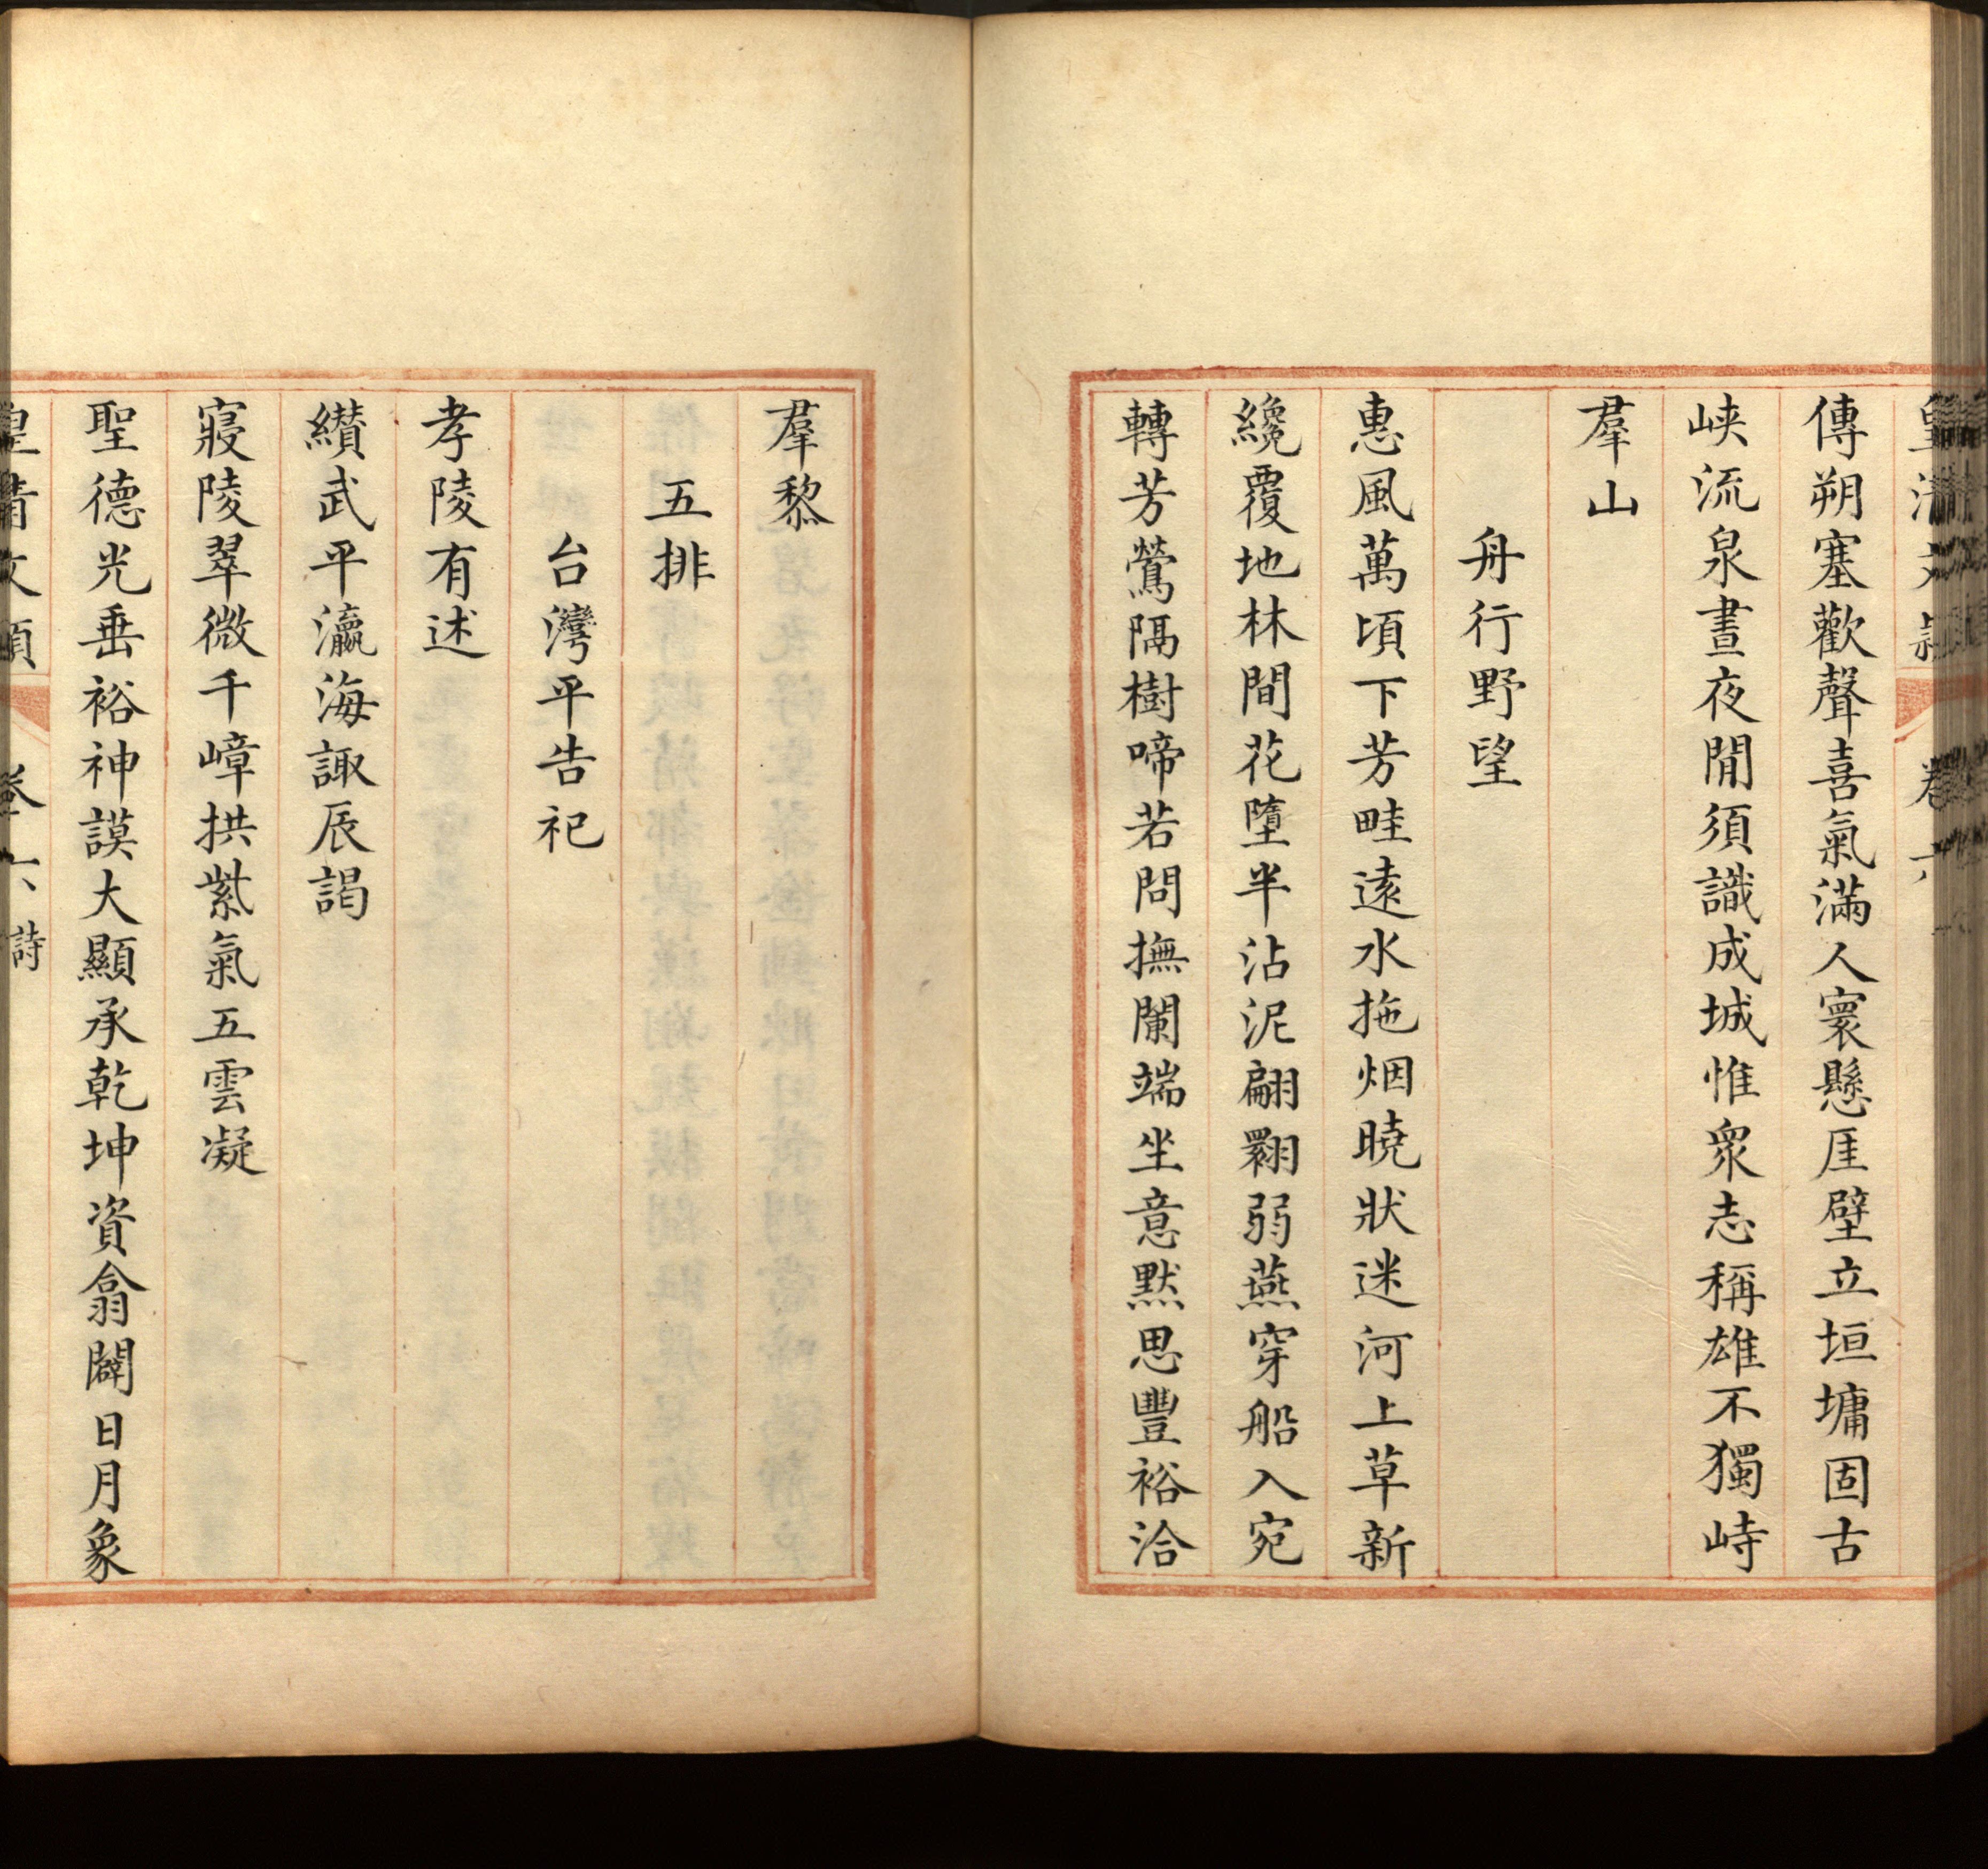 皇清文穎 卷六
傳朔塞歡聲喜氣滿人寰懸厓壁立垣墉固古
峽流泉晝夜閒須識成城惟衆志稱雄不獨峙
羣山
舟行野望
惠風萬頃下芳畦遠水拖烟曉狀迷河上草新
纔覆地林間花墮半沾泥翩翾弱燕穿船入宛
轉芳鶯隔樹啼若問撫闌端坐意默思豐裕洽
羣黎
五排
台灣平告祀
孝陵有述
纘武平瀛海諏辰謁
寢陵翠微千嶂拱紫氣五雲凝
聖德光垂裕神謨大顯承乾坤資翕闢日月象
皇清文穎 卷六 詩